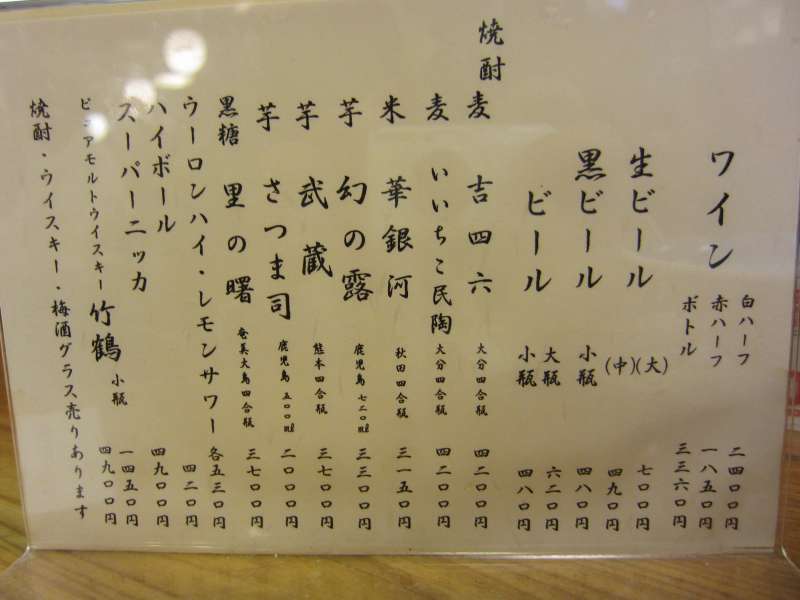 ワイン 白ハーフ 二四〇〇円
赤ハーフ 一八五〇円
ボトル 三三六〇円
生ビール (大) 七〇〇円
(中) 四九〇円
黒ビール 小瓶 四八〇円
ビール 大瓶 六二〇円
小瓶 四八〇円
焼酎 麦 吉四六 大分四合瓶 四二〇〇円
麦 いいちこ民陶 大分四合瓶 四二〇〇円
米 華銀河 秋田四合瓶 三一五〇円
芋 幻の露 鹿児島 七二〇ml 三三〇〇円
芋 武蔵 熊本四合瓶 三七〇〇円
芋 さつま司 鹿児島 五〇〇ml 二〇〇〇円
黒糖 里の曙 奄美大島四合瓶 三七〇〇円
ウーロンハイ・レモンサワー 各五三〇円
ハイボール 四二〇円
スーパーニッカ 四九〇円
ピュアモルトウイスキー 竹鶴 小瓶 一四五〇円
四九〇〇円
焼酎・ウイスキー・梅酒グラス売りあります